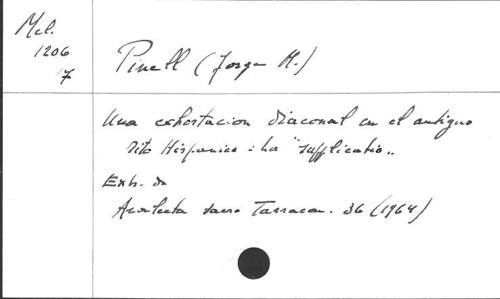 Mel.
1206
17
Pinell (Jorge M.)
Una exhortacion diaconal en el antiguo
rito Hispanico : la "supplicatio„
Extr. de
Analecta sacra Tarracon. 36 (1964)